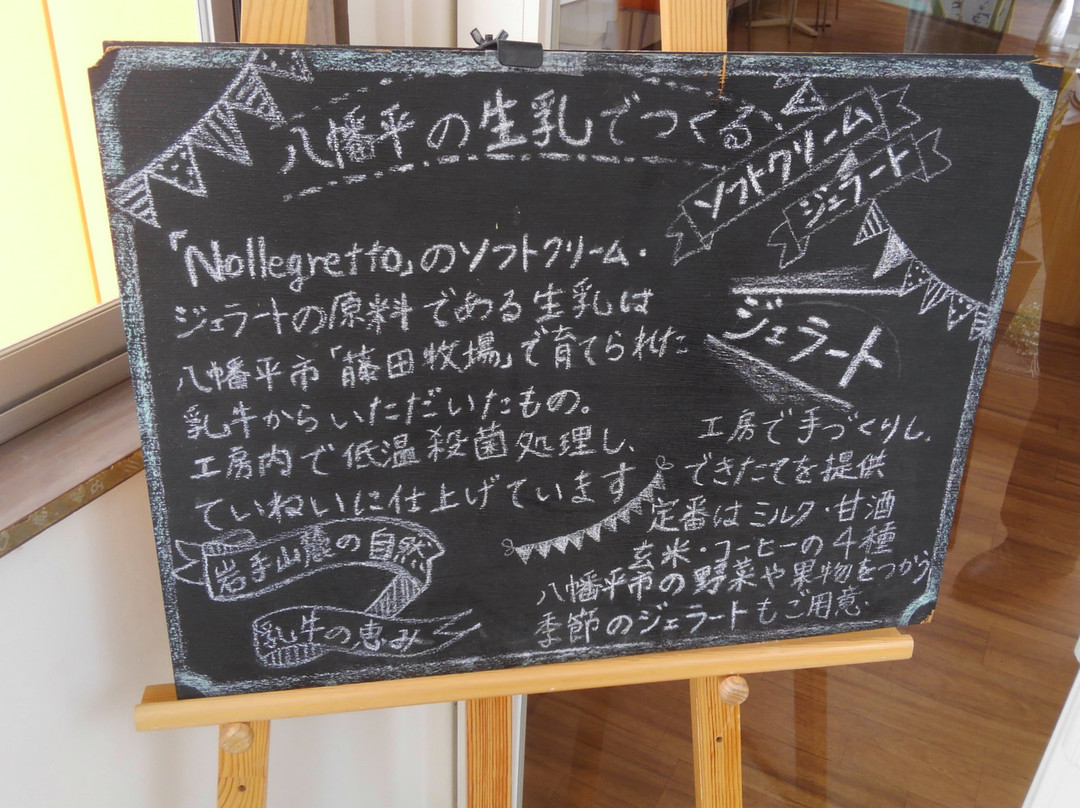 八幡平の生乳でつくる
ソフトクリーム
ジェラート
「Nollegretto」のソフトクリーム・
ジェラートの原料である生乳は
八幡平市「藤田牧場」で育てられた
乳牛からいただいたもの。
工房内で低温殺菌処理し、
ていねいに仕上げています
岩手山麓の自然
乳牛の恵み
ジェラート
工房で手づくりし、
できたてを提供
定番はミルク・甘酒
玄米・コーヒーの4種
八幡平市の野菜や果物をつかう
季節のジェラートもご用意.